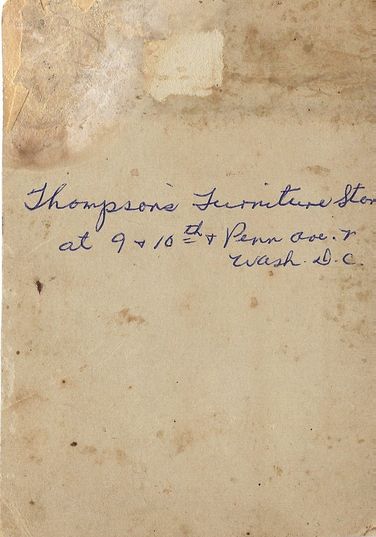 Thompson's Furniture Stor
at 9 + 10th + Penn Ave. n
Wash. D.C.